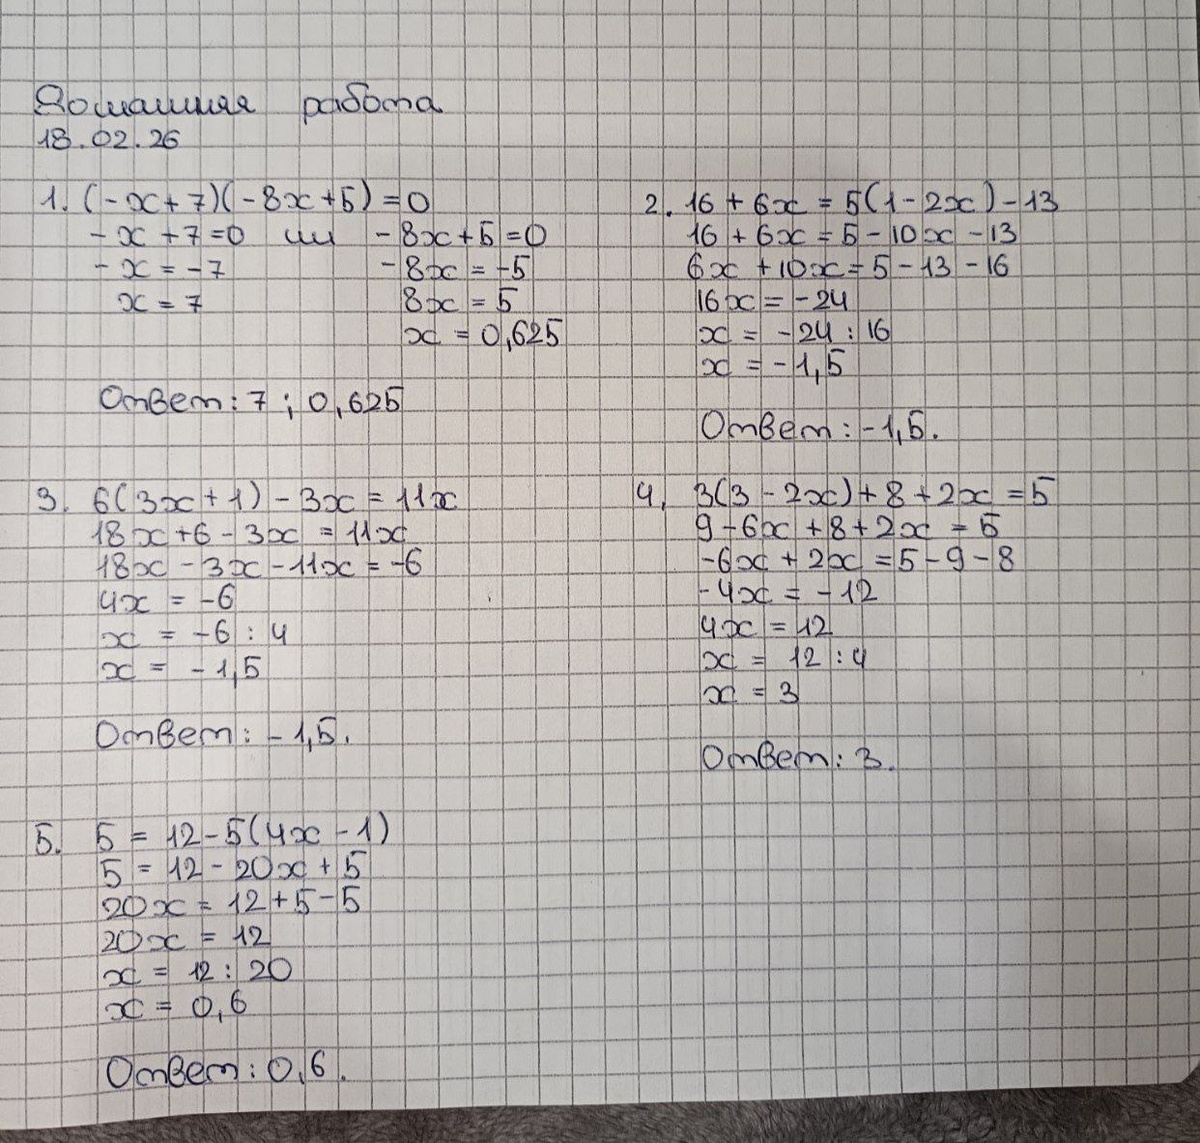 Домашняя работа
18.02.26
1. (-x+7)(-8x+5)=0
-x+7=0 или -8x+5=0
-x=-7 -8x=-5
x=7 8x=5
x=0,625
Ответ: 7; 0,625
2. 16+6x=5(1-2x)-13
16+6x=5-10x-13
6x+10x=5-13-16
16x=-24
x=-24:16
x=-1,5
Ответ: -1,5.
3. 6(3x+1)-3x=11x
18x+6-3x=11x
18x-3x-11x=-6
4x=-6
x=-6:4
x=-1,5
Ответ: -1,5.
4. 3(3-2x)+8+2x=5
9-6x+8+2x=5
-6x+2x=5-9-8
-4x=-12
4x=12
x=12:4
x=3
Ответ: 3.
5. 5=12-5(4x-1)
5=12-20x+5
20x=12+5-5
20x=12
x=12:20
x=0,6
Ответ: 0,6.